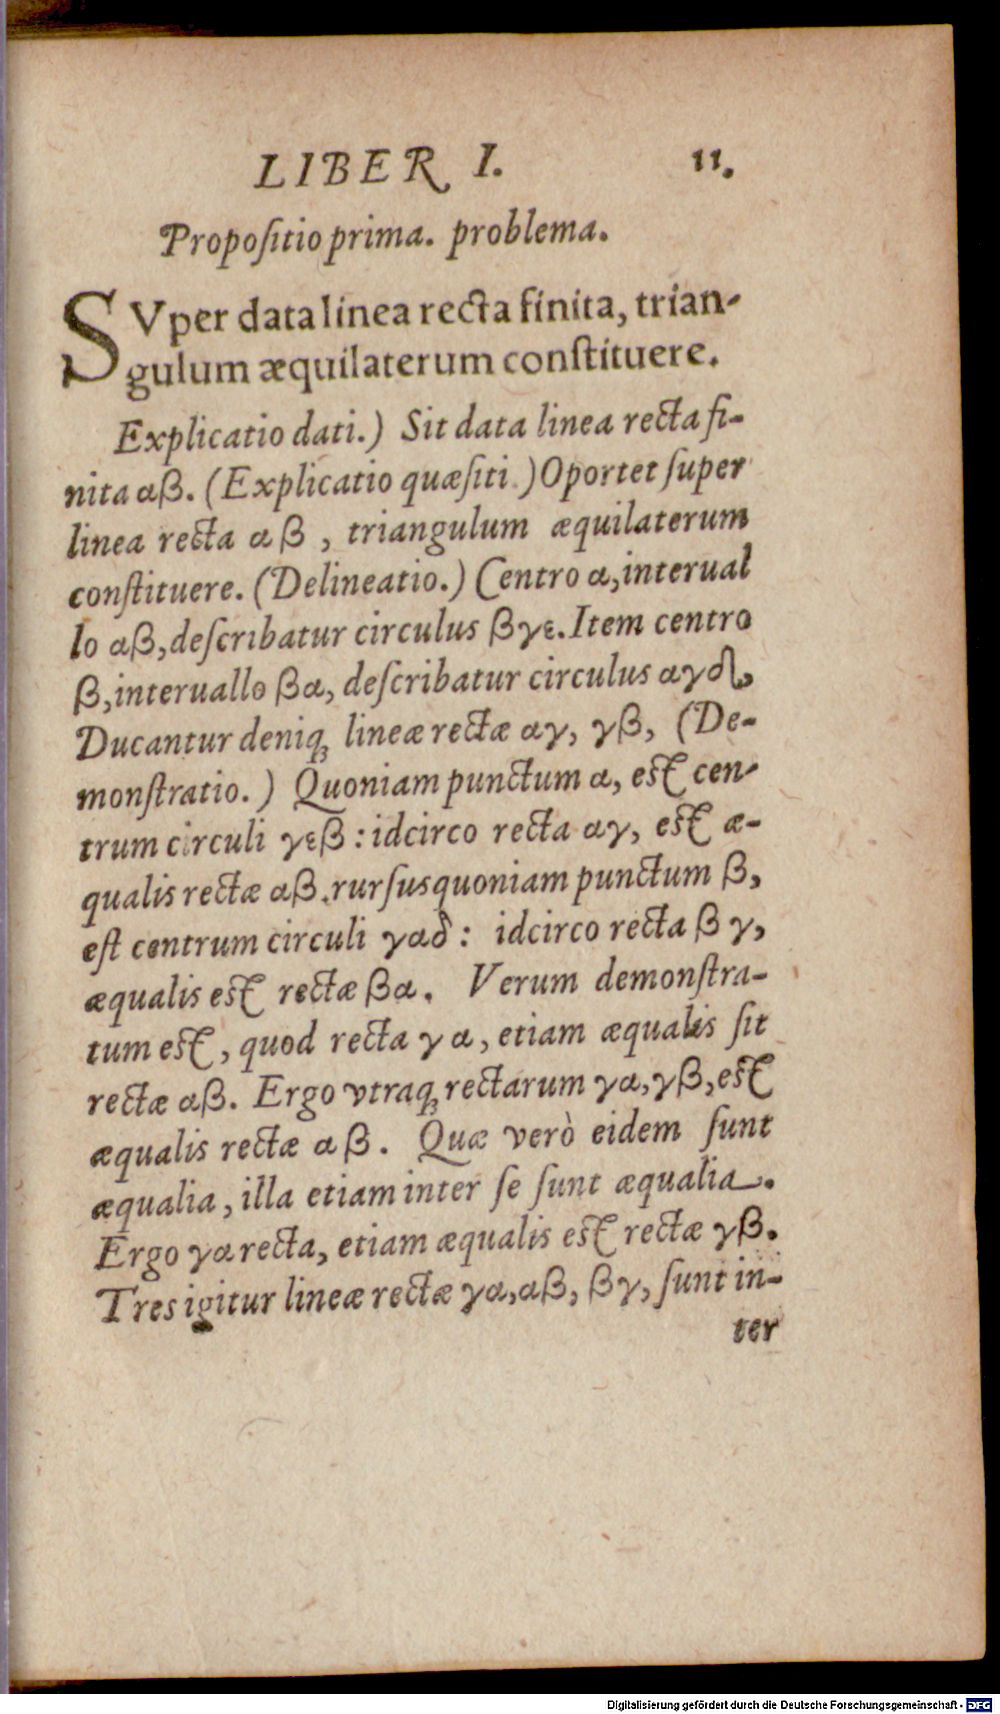 LIBER I. 11.
Propoſitio prima. problema.
SVper data linea recta finita, trian-
gulum æquilaterum conſtituere.
Explicatio dati.) Sit data linea recta fi-
nita αβ. (Explicatio quæſiti.) Oportet ſuper
linea recta αβ, triangulum æquilaterum
conſtituere. (Delineatio.) Centro α, interual
lo αβ, deſcribatur circulus βγε. Item centro
β, interuallo βα, deſcribatur circulus αγδ,
Ducantur deniq; lineæ rectæ αγ, γβ, (De-
monſtratio.) Quoniam punctum α, eſt cen-
trum circuli γεβ: idcirco recta αγ, eſt æ-
qualis rectæ αβ. rurſus quoniam punctum β,
eſt centrum circuli γαδ: idcirco recta βγ,
æqualis eſt rectæ βα. Verum demonſtra-
tum eſt, quod recta γα, etiam æqualis ſit
rectæ αβ. Ergo vtraq; rectarum γα, γβ, eſt
æqualis rectæ αβ. Quæ verò eidem ſunt
æqualia, illa etiam inter ſe ſunt æqualia.
Ergo γα recta, etiam æqualis eſt rectæ γβ.
Tres igitur lineæ rectæ γα, αβ, βγ, ſunt in-
ter
Digitalisierung gefördert durch die Deutsche Forschungsgemeinschaft - DFG